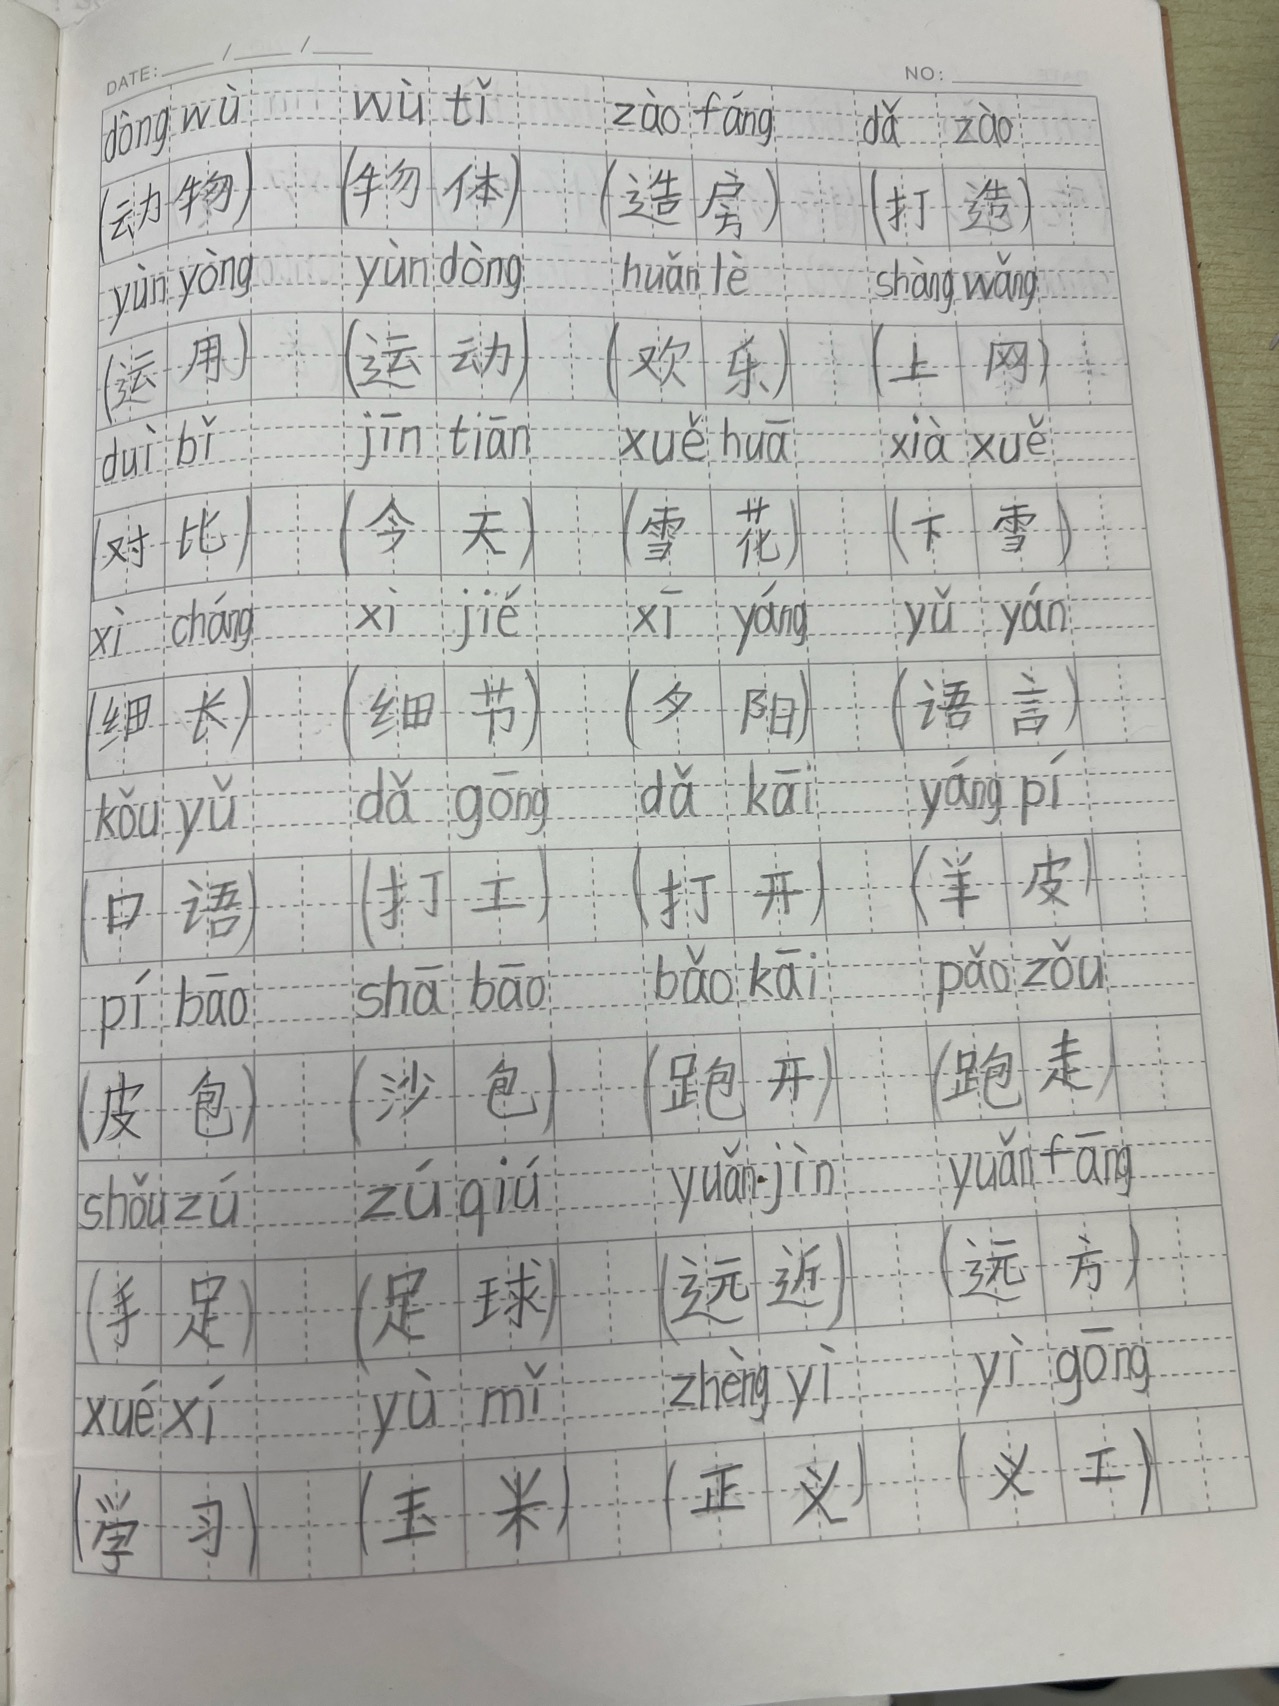 DATE: ____ / ____ / ____ NO: ____
dòng wù wù tǐ zào fáng dǎ zào
(动物) (物体) (造房) (打造)
yùn yòng yùn dòng huǎn lè shàng wǎng
(运用) (运动) (欢乐) (上网)
duì bǐ jīn tiān xuě huā xià xuě
(对比) (今天) (雪花) (下雪)
xì cháng xì jié xī yáng yǔ yán
(细长) (细节) (夕阳) (语言)
kǒu yǔ dǎ gōng dǎ kāi yáng pí
(口语) (打工) (打开) (羊皮)
pí bāo shā bāo bǎo kāi pǎo zǒu
(皮包) (沙包) (跑开) (跑走)
shǒu zú zú qiú yuǎn jìn yuǎn fāng
(手足) (足球) (远近) (远方)
xué xí yù mǐ zhèng yì yì gōng
(学习) (玉米) (正义) (义工)